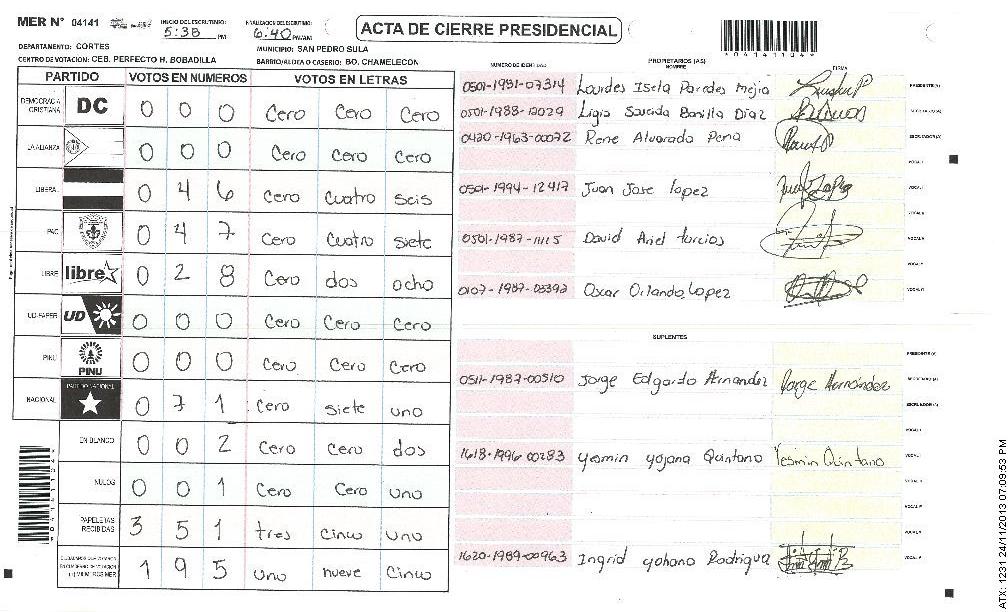 MER N° 04141
INICIO DEL ESCRUTINIO:
5:38 PM
FINALIZACION DEL ESCRUTINIO:
6:40 PM/AM
ACTA DE CIERRE PRESIDENCIAL
04141104
DEPARTAMENTO: CORTES
MUNICIPIO: SAN PEDRO SULA
CENTRO DE VOTACION: CEB. PERFECTO H. BOBADILLA
BARRIO/ALDEA O CASERIO: BO. CHAMELECON
PARTIDO VOTOS EN NUMEROS VOTOS EN LETRAS
DEMOCRACIA CRISTIANA DC 0 0 0 Cero Cero Cero
LA ALIANZA 0 0 0 Cero Cero Cero
LIBERAL 0 4 6 Cero Cuatro seis
PAC 0 4 7 Cero Cuatro siete
LIBRE libre 0 2 8 Cero dos ocho
UD-FAPER UD 0 0 0 Cero Cero Cero
PINU PINU 0 0 0 Cero Cero Cero
NACIONAL PARTIDO NACIONAL 0 7 1 Cero siete uno
EN BLANCO 0 0 2 Cero Cero dos
NULOS 0 0 1 Cero Cero uno
PAPELETAS RECIBIDAS 3 5 1 tres Cinco uno
1 9 5 uno nueve Cinco
NUMERO DE IDENTIDAD
PROPIETARIOS (AS)
NOMBRE
FIRMA
0501-1981-07314 Lourdes Isela Paredes Mejia PRESIDENTE(A)
0501-1988-12029 Ligia Saucida Bonilla Diaz SECRETARIO(A)
0420-1963-00072 Rene Alvarado Pena ESCRUTADOR(A)
VOCAL I
0501-1994-12417 Juan Jose Lopez
0501-1987-11115 David Ariel turcios
0107-1987-03392 Oscar Orlando Lopez
SUPLENTES
PRESIDENTE(A)
0511-1987-00510 Jorge Edgardo Hernandez Jorge Hernández SECRETARIO(A)
ESCRUTADOR(A)
VOCAL I
1618-1996-00283 yesmin yojana Quintano Yesmin Quintano
1620-1989-00963 Ingrid yohana Rodrigua
ATX: 1231 24/11/2013 07:09:53 PM